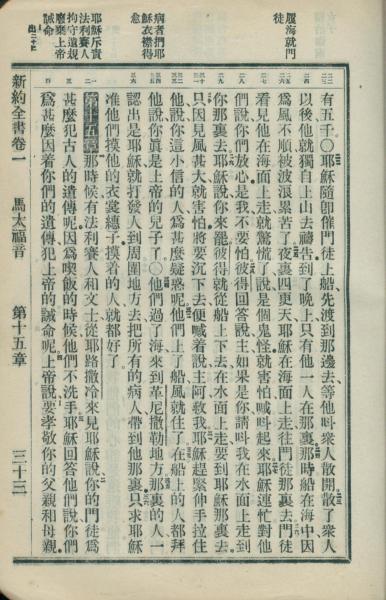 履海就門
徒
病者捫耶
穌衣襟得
愈
耶穌斥責
法利賽人
拘守遺規
廢棄上帝
誡命
有五千〇耶穌隨卽催門徒上船先渡到那邊去等他呌衆人散開散了衆人
以後他就獨自上山去禱告到了晚上只有他一人在那裏那時船在海中因
爲風不順被波浪累苦了夜裏四更天耶穌在海面上走往門徒那裏去門徒
看見他在海面上走就驚慌了說是個鬼怪就害怕喊呌起來耶穌連忙對他
們說你們放心是我不要怕彼得回答說主如果是你請呌我在水面上走到
你那裏去耶穌說你來罷彼得就從船上下去在水面上走要到耶穌那裏去
只因見風甚大就害怕將要沉下去便喊着說主阿救我耶穌趕緊伸手拉住
他說你這小信的人爲甚麼疑惑呢他們上了船風就住了在船上的人都拜
他說你眞是上帝的兒子了〇他們過了海來到革尼撒勒地方那裏的人一
認出是耶穌就打發人到周圍地方去把所有的病人帶到他那裏只求耶穌
准他們摸他的衣裳繸子摸着的人就都好了
第十五章那時候有法利賽人和文士從耶路撒冷來見耶穌說你的門徒爲
甚麼犯古人的遺傳呢因爲喫飯的時候他們不洗手耶穌回答他們說你們
爲甚麼因着你們的遺傳犯上帝的誡命呢上帝說要孝敬你的父親和母親
新約全書卷一 馬太福音 第十五章 三十三